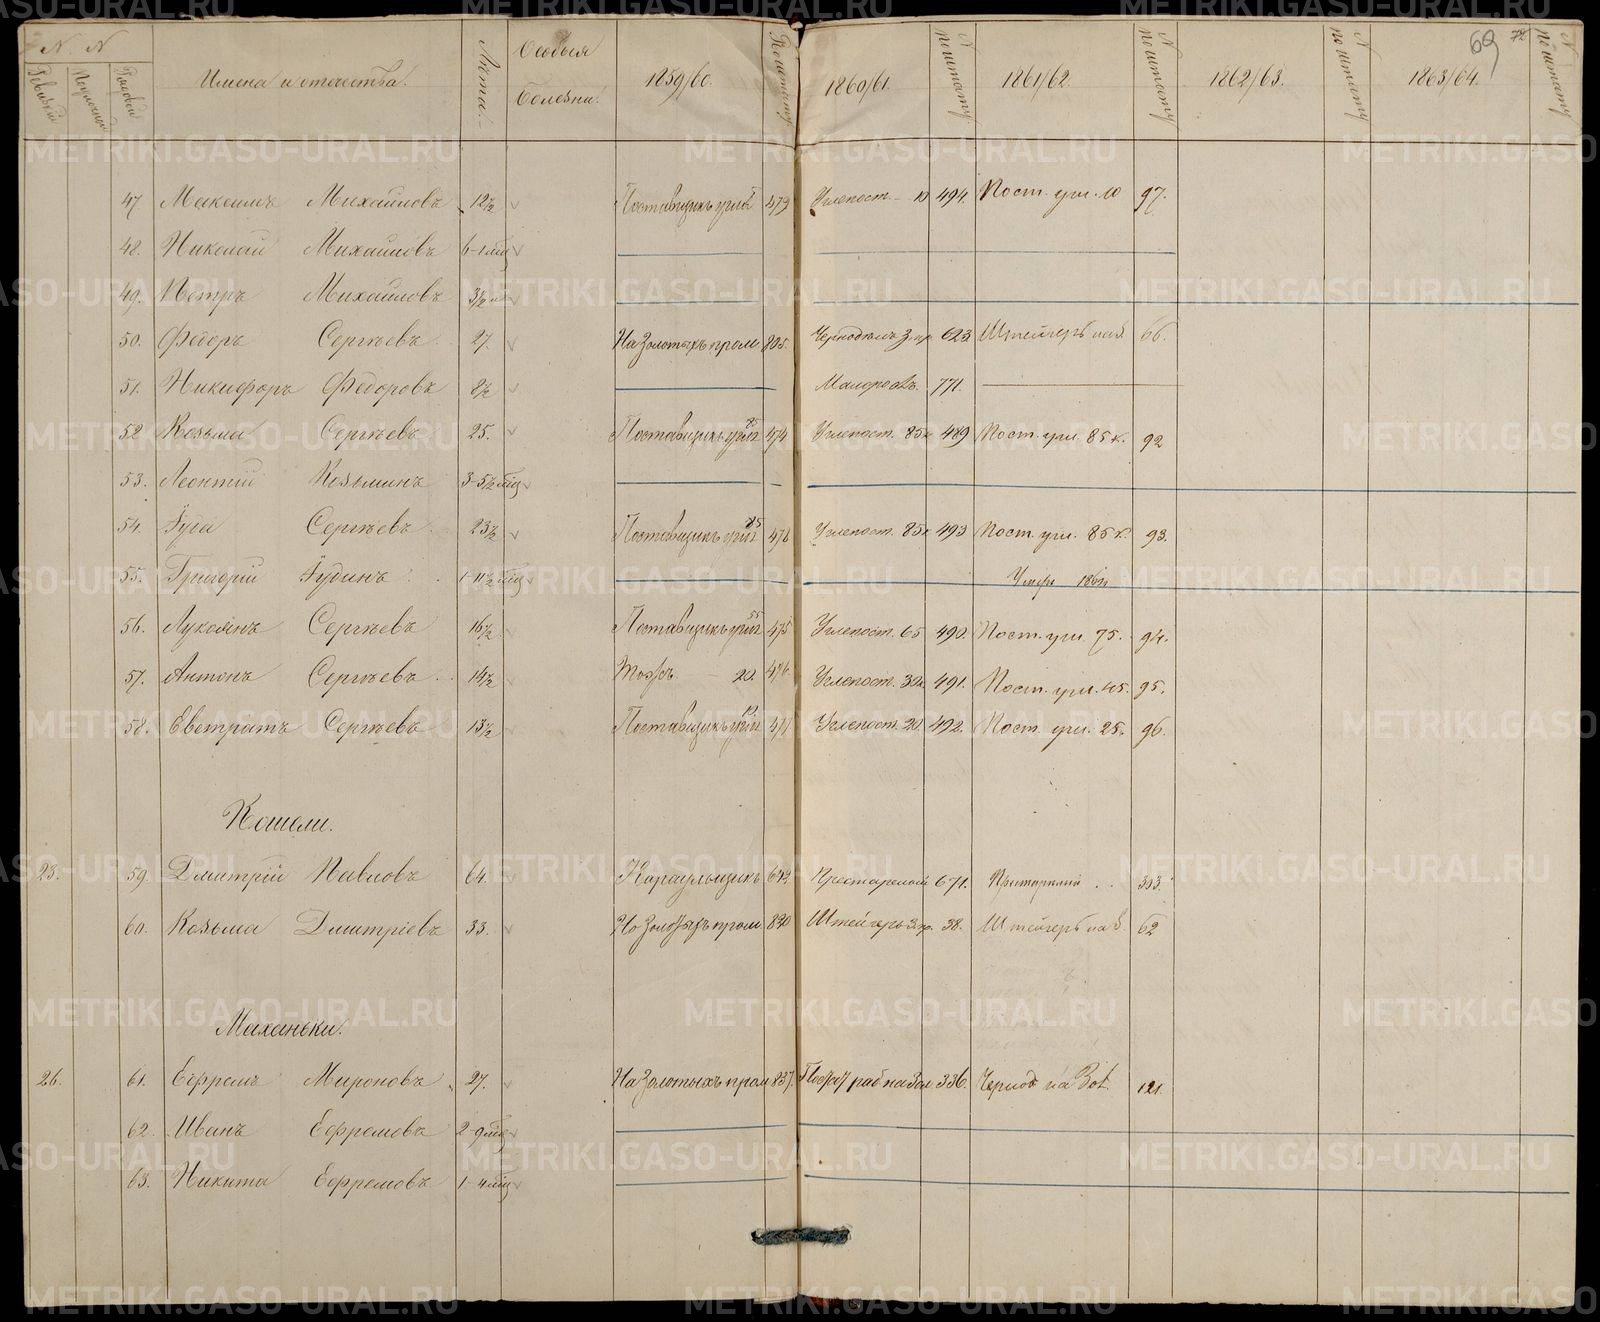 N. N
Ревизский
Подушной
Родовой
Имена и отчества.
Лѣта.
Особыя Болезни.
1859/60.
По штату
1860/61.
N по штату.
1861/62.
N по штату
1862/63.
N по штату
1863/64.
N по штату
69
47 Максимъ Михайловъ 12½ Поставщикъ угля 479 Углепост. 10 494. Пост. угл. 10 97.
48. Николай Михайловъ 6-1 мѣц
49. Петръ Михайловъ 3½
50. Федоръ Сергѣевъ 27. На Золотыхъ пром 805. 623 Штейгеръ 66.
51. Никифоръ Федоровъ 8½ Малорос. 771.
52 Козьма Сергѣевъ 25. Поставщикъ угля 85 474 Углепост. 85к 489 Пост. угл. 85 к. 92
53. Леонтій Козьминъ 3-5½ мѣц
54. Іуда Сергѣевъ 23½ Поставщикъ угля 85 478 Углепост. 85к 493 Пост. угл. 85 к. 93.
55. Григорій Іудинъ 1-11½ мѣц Умеръ
56. Лукоянъ Сергѣевъ 16½ Поставщикъ угля 55 475 Углепост. 65 490. Пост. угл. 75. 94.
57. Антонъ Сергѣевъ 14½ Тожъ 20. 476 Углепост. 30к 491. Пост. угл. 45. 95.
58. Евстратъ Сергѣевъ 13½ Поставщикъ угля 477 Углепост. 20. 492. Пост. угл. 25. 96.
Кошели.
23. 59. Дмитрій Павловъ 64. Караульщикъ 642 Престарелой 671. Престарелый 303.
60. Козьма Дмитріевъ 33. На Золотыхъ пром. 830 Штейгеръ 38. Штейгеръ 62
Маханьки.
26. 61. Ефремъ Мироновъ 27. На Золотыхъ пром 837. раб на Зол. 336. на Зол. 121.
62. Иванъ Ефремовъ 2-9 мѣц
63. Никита Ефремовъ 1-4 мѣц
METRIKI.GASO-URAL.RU